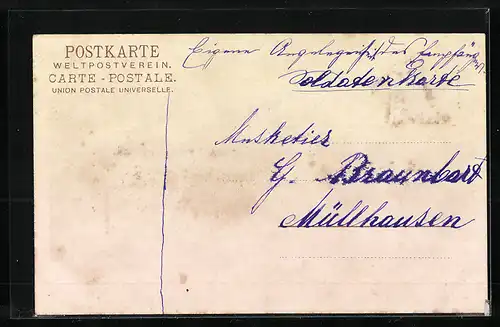 POSTKARTE
WELTPOSTVEREIN.
CARTE - POSTALE.
UNION POSTALE UNIVERSELLE.
Eigene Angelegenheit des Empfängers.
Soldatenkarte
Musketier
G. Braunbart
Müllhausen